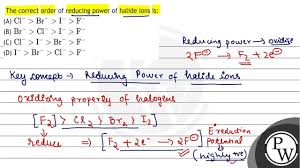 The correct order of reducing power of halide ions is:
(A) Cl⁻ > Br⁻ > I⁻ > F⁻
(B) Br⁻ > Cl⁻ > I⁻ > F⁻
(C) I⁻ > Br⁻ > Cl⁻ > F⁻
(D) I⁻ > Cl⁻ > Br⁻ > F⁻
Reducing power → oxidise
2F⊖ → F₂ + 2e⊖
Key concept → Reducing Power of halide ions
Oxidising property of halogens
[F₂] > Cl₂ > Br₂ > I₂]
reduce ⇒ [F₂ + 2e⁻ → 2F⊖] E° reduction
potential
(highly +ve)
PW